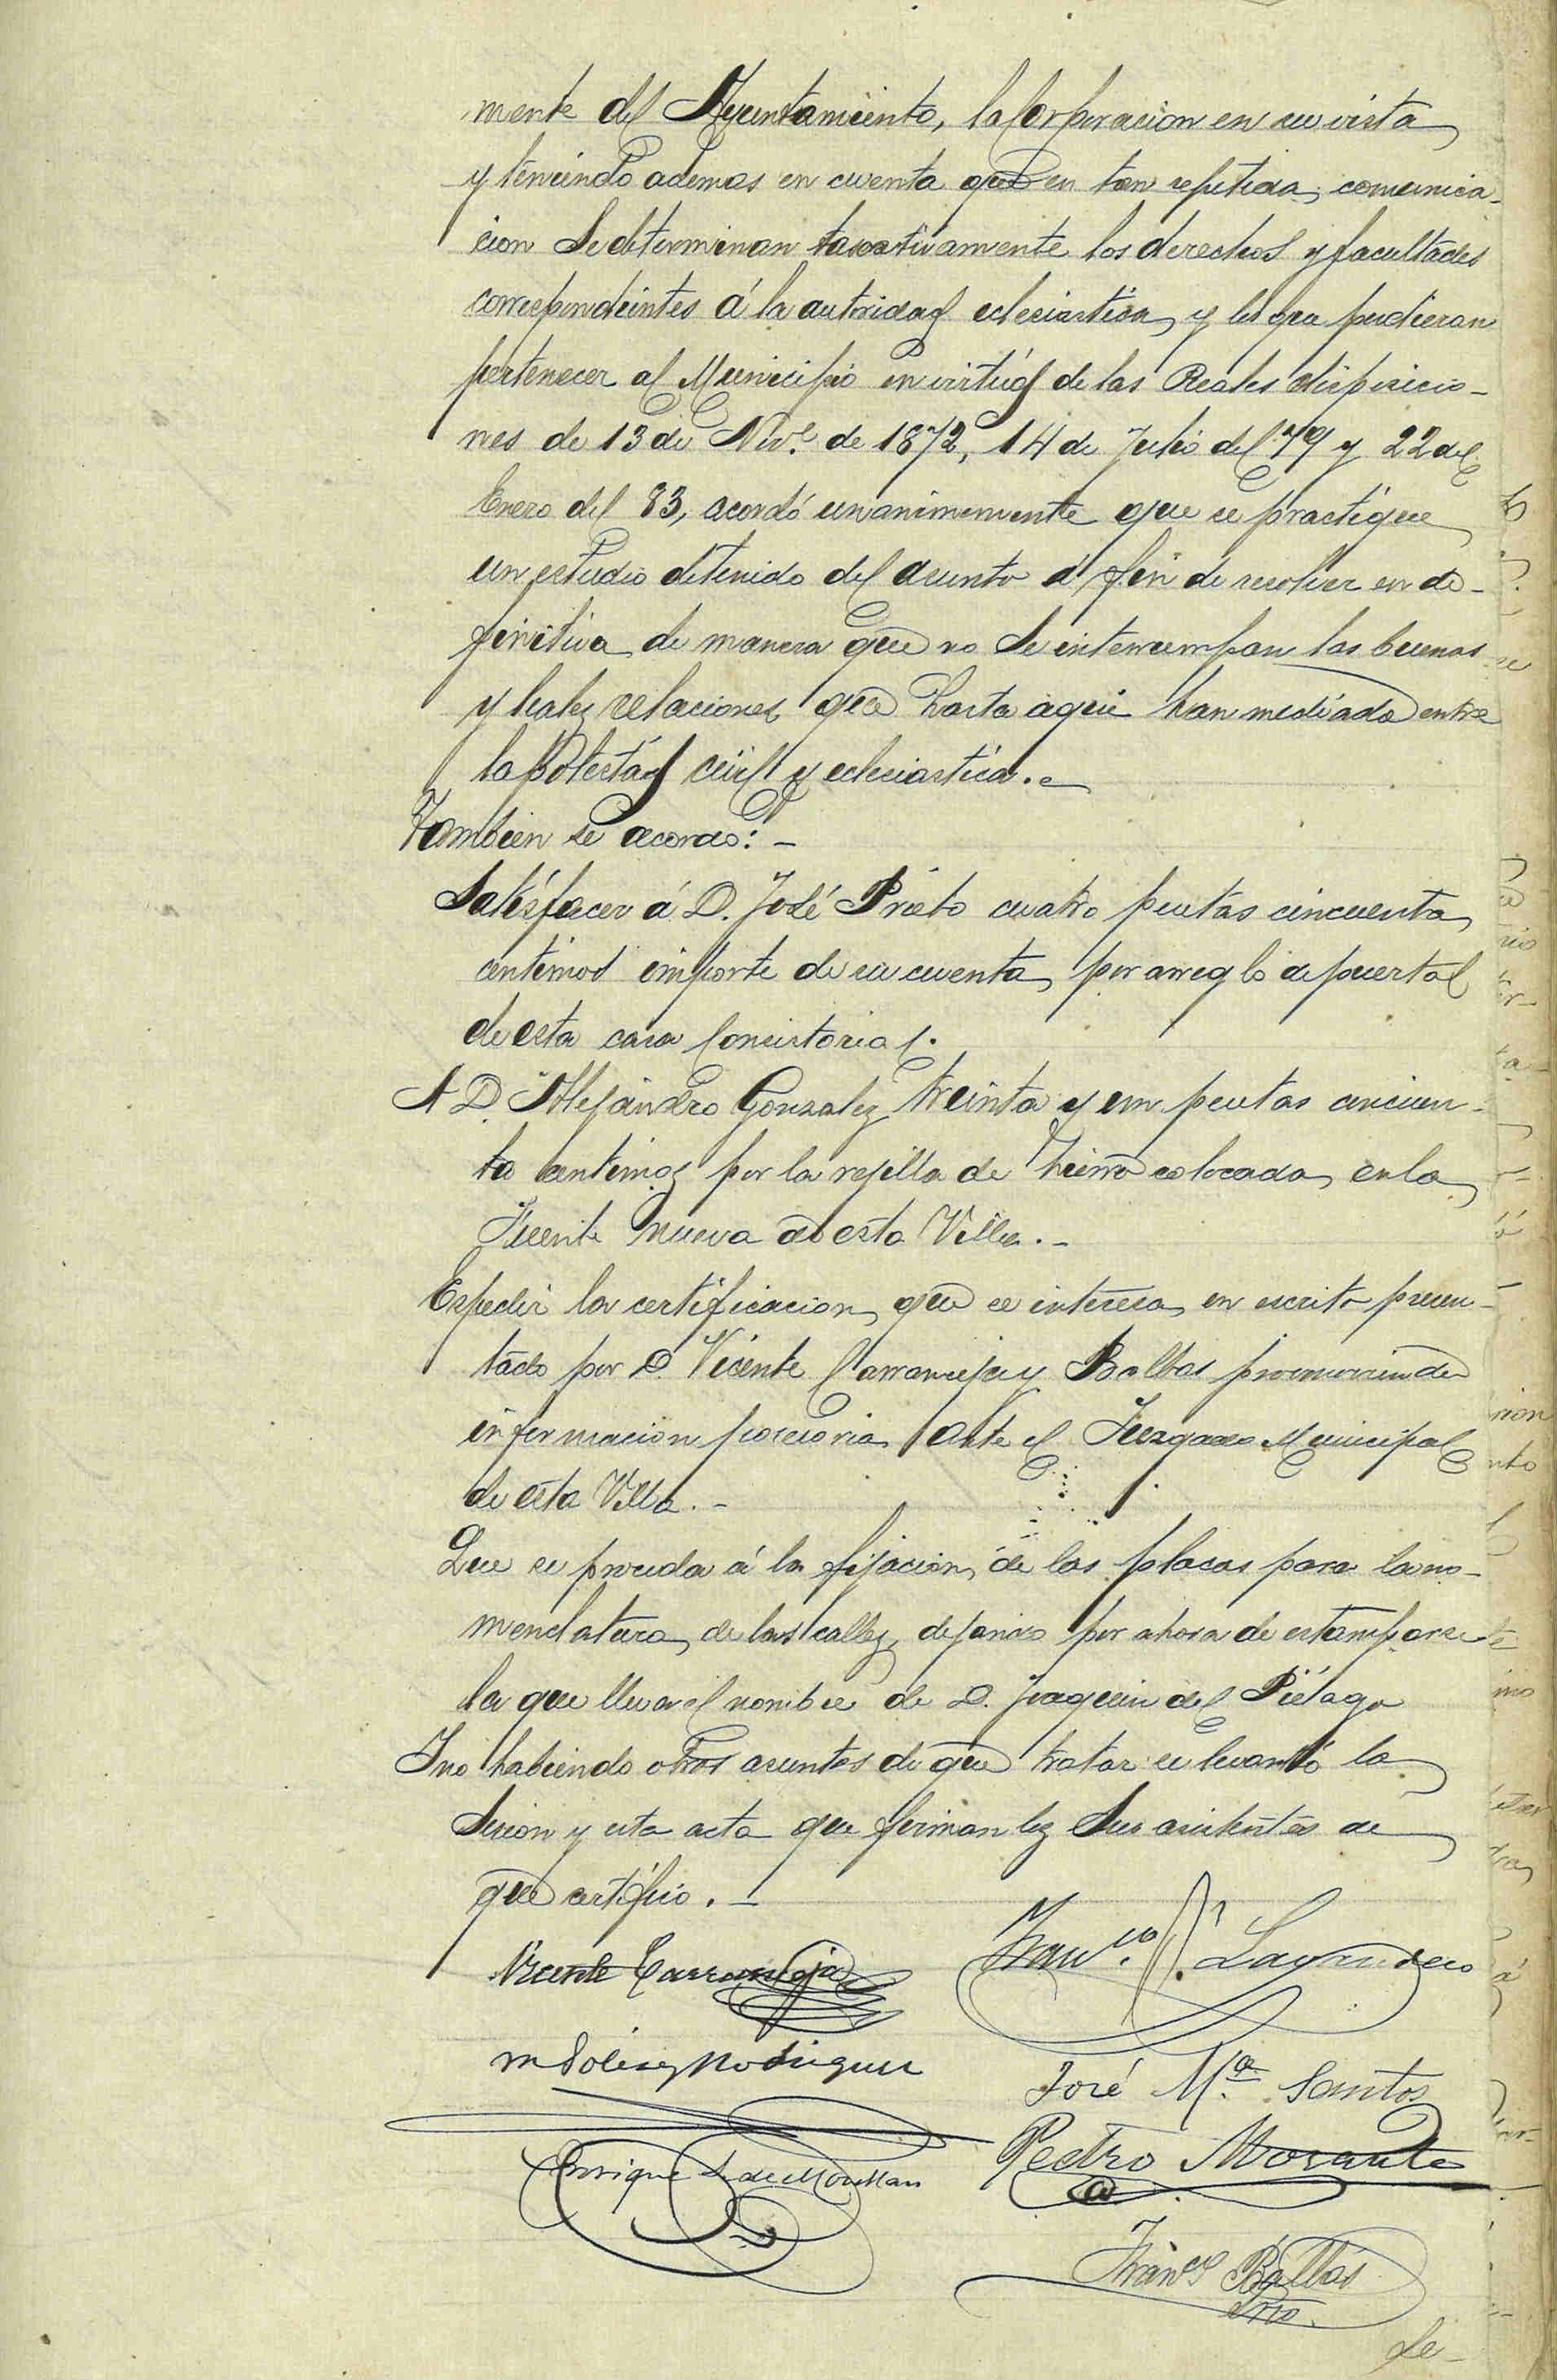 mente del Ayuntamiento, la Corporacion en su vista
y teniendo ademas en cuenta que en tan repetida comunica-
cion se determinan taxativamente los derechos y facultades
correspondientes á la autoridad eclesiastica y los que pudieran
pertenecer al Municipio en virtud de las Reales disposicio-
nes de 13 de Nove. de 1872, 14 de Julio del 79 y 22 de
Enero del 83, acordó unanimemente que se practique
un estudio detenido del asunto á fin de resolver en de-
finitiva de manera que no se interrumpan las buenas
y leales relaciones que hasta aqui han mediado entre
la potestad civil y eclesiastica.
Tambien se acordo: -
Satisfacer á D. José Prieto cuatro pesetas cincuenta
centimos importe de su cuenta por arreglo de puertas
de esta casa Consistorial.
A D. Alejandro Gonzalez treinta y un pesetas cincuen-
ta centimos por la rejilla de hierro colocada en la
Fuente nueva de esta Villa. -
Espedir la certificacion que se interesa en escrito presen-
tado por D. Vicente Carranceja y Balbas promoviendo
informacion posesoria ante el Juzgado Municipal
de esta Villa. -
Que se proceda á la fijacion de las placas para la no-
menclatura de las calles, dejando por ahora de estamparse
la que lleva el nombre de D. Joaquin del Piélago
Y no habiendo otros asuntos de que tratar se levantó la
sesion y esta acta que firman los Sres asistentes de
que certifico. -
Vicente Carranceja Franco.
M Rodriguez
José Ma. Santos
Enrique de Mowllan Pedro Morante
Franco Balbás
Srio.
de-